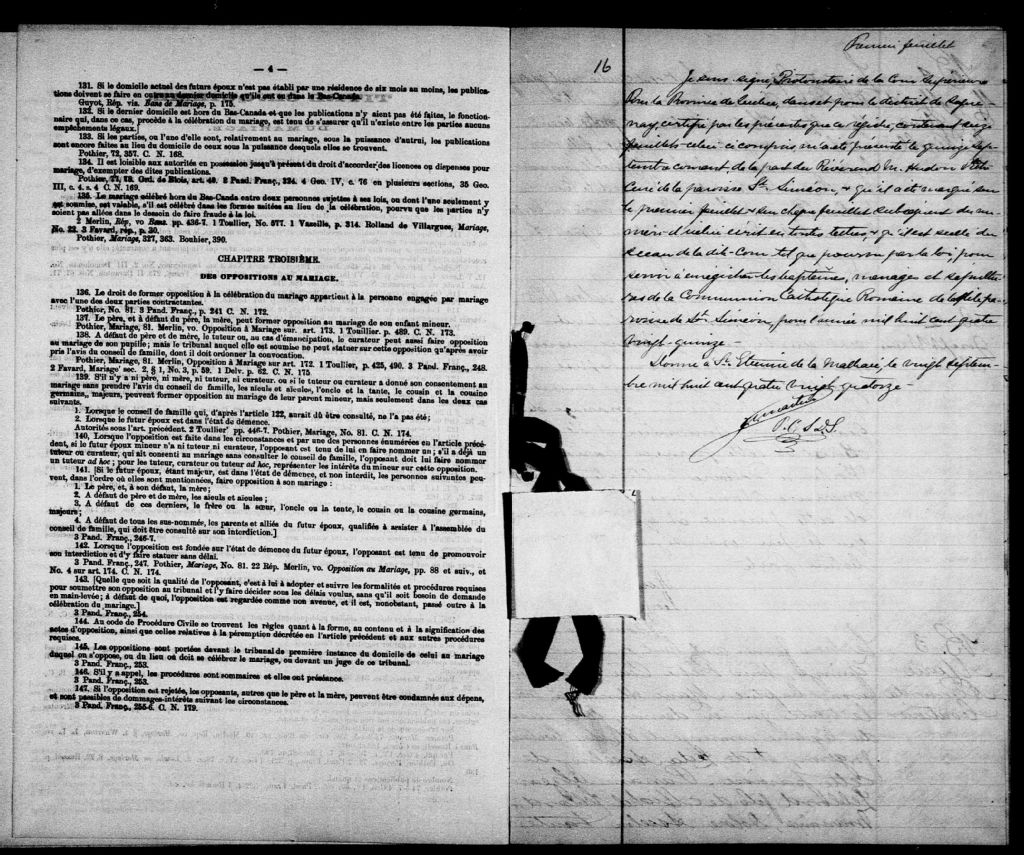 — 4 —
131. Si le domicile actuel des futurs époux n'est pas établi par une résidence de six mois au moins, les publica-
tions doivent se faire en outre au dernier domicile qu'ils ont eu dans le Bas-Canada.
Guyot, Rép. vis. Bans de Mariage, p. 175.
132. Si le dernier domicile est hors du Bas-Canada et que les publications n'y aient pas été faites, le fonction-
naire qui, dans ce cas, procède à la célébration du mariage, est tenu de s'assurer qu'il n'existe entre les parties aucuns
empêchements légaux.]
133. Si les parties, ou l'une d'elle sont, relativement au mariage, sous la puissance d'autrui, les publications
sont encore faites au lieu du domicile de ceux sous la puissance desquels elles se trouvent.
Pothier, 72, 357. C. N. 168.
134. Il est loisible aux autorités en possession jusqu'à présent du droit d'accorder des licences ou dispenses pour
mariage, d'exempter des dites publications.
Pothier, 77, 78. Ord. de Blois, art. 40. 2 Pand. Franç., 224. 4 Geo. IV, c. 76 en plusieurs sections, 35 Geo.
III, c. 4. s. 4 C. N. 169.
135. Le mariage célébré hors du Bas-Canda entre deux personnes sujettes à ses lois, ou dont l'une seulement y
est soumise, est valable, s'il est célébré dans les formes usitées au lieu de la célébration, pourvu que les parties n'y
soient pas allées dans le dessein de faire fraude à la loi.
2 Merlin, Rép, vo Bans. pp. 436-7. 1 Toullier, No. 577. 1 Vazeille, p. 314. Rolland de Villargues, Mariage,
No. 22. 3 Favard, rép., p. 30.
Pothier, Mariage, 327, 363. Bouhier, 390.
CHAPITRE TROISIÈME.
DES OPPOSITIONS AU MARIAGE.
136. Le droit de former opposition à la célébration du mariage appartient à la personne engagée par mariage
avec l'une des deux parties contractantes.
Pothier, No. 81. 3 Pand. Franç., p. 241 C. N. 172.
137. Le père, et à défaut du père, la mère, peut former opposition au mariage de son enfant mineur.
Pothier, Mariage, 81. Merlin, vo. Opposition à Mariage sur. art. 173. 1 Touillier. p. 489. C. N. 173.
138. A défaut de père et de mère, le tuteur ou, au cas d'émancipation, le curateur peut aussi faire opposition
au mariage de son pupille; mais le tribunal auquel elle est soumise ne peut statuer sur cette opposition qu'après avoir
pris l'avis du conseil de famille, dont il doit ordonner la convocation.
Pothier, Mariage, 81. Merlin, Opposition à Mariage sur art. 172. 1 Toulier, p. 425, 490. 3 Pand. Franç., 248.
2 Favard, Mariage' sec. 2, § 1, No. 3, p. 59. 1 Delv. p. 62. C. N. 175
139. S'il n'y a ni père, ni mère, ni tuteur, ni curateur, ou si le tuteur ou curateur a donné son consentement au
mariage sans prendre l'avis du conseil de famille, les aïeuls et aïeules, l'oncle et la tante, le cousin et la cousine
germains, majeurs, peuvent former opposition au mariage de leur parent mineur, mais seulement dans les deux cas
suivants.
1. Lorsque le conseil de famille qui, d'après l'article 122, aurait dû être consulté, ne l'a pas été;
2. Lorsque le futur époux est dans l'état de démence.
Autorités sous l'art. précédent. 2 Toullier' pp. 446-7. Pothier, Mariage, No. 81 C. N. 174.
140. Lorsque l'opposition est faite dans les circonstances et par une des personnes énumérées en l'article précé-
dent, si le futur époux mineur n'a ni tuteur ni curateur, l'opposant est tenu de lui en faire nommer un; s'il a déjà un
tuteur ou curateur, qui ait consenti au mariage sans consulter le conseil de famille, l'opposant doit lui faire nommer
un tuteur ad hoc; pour les tuteur, curateur ou tuteur ad hoc, représenter les intérêts du mineur sur cette opposition.
141. [Si le futur époux, étant majeur, est dans l'état de démence, et non interdit, les personnes suivantes peu-
vent, dans l'ordre où elles sont mentionnées, faire opposition à son mariage :
1. Le père, et, à son défaut, la mère;
2. A défaut de père et de mère, les aieuls et aieules ;
3. A défaut de ces derniers, le frère ou la sœur, l'oncle ou la tente, le cousin ou la cousine germains,
majeurs;
4. A défaut de tous les sus-nommés, les parents et alliés du futur époux, qualifiés à assister à l'assemblée du
conseil de famille, qui doit être consulté sur son interdiction.]
3 Pand. Franç., 246-7.
142. Lorsque l'opposition est fondée sur l'état de démence du futur époux, l'opposant est tenu de promouvoir
son interdiction et d'y faire statuer sans délai.
3 Pand. Franç., 247. Pothier, Mariage, No. 81. 22 Rép. Merlin, vo. Opposition au Mariage, pp. 88 et suiv., et
No. 4 sur art. 174. C. N. 174.
143. [Quelle que soit la qualité de l'opposant, c'est à lui à adopter et suivre les formalités et procédures requises
pour soumettre son opposition au tribunal et l'y faire décider sous les délais voulus, sans qu'il soit besoin de demande
en main-levée; à défaut de quoi, l'opposition est regardée comme non avenue, et il est, nonobstant, passé outre à la
célébration du mariage.]
3 Pand. Franç., 254.
144. Au code de Procédure Civile se trouvent les règles quant à la forme, au contenu et à la signification des
actes d'opposition, ainsi que celles relatives à la péremption décrétée en l'article précédent et aux autres procédures
requises.
145. Les oppositions sont portées devant le tribunal de première instance du domicile de celui au mariage
duquel on s'oppose, ou du lieu où doit se célébrer le mariage, ou devant un juge de ce tribunal.
3 Pand. Franç., 253.
146. S'il y a appel, les procédures sont sommaires et elles ont préséance.
3 Pand. Franç., 253.
147. Si l'opposition est rejetée, les opposants, autres que le père et la mère, peuvent être condamnés aux dépens,
et sont passibles de dommages-intérêts suivant les circonstances.
3 Pand. Franç., 255-6. C. N. 179.
16
Premier feuillet
Je soussigné, Protonotaire de la Cour Supérieure
Pour la Province de Québec, dans et pour le district de Sague-
nay, certifie par les présentes que ce régistre, contenant
feuillets celui ci compris m'a été présenté le quinze Sep-
tembre courant de la part du Révérend M. Audon Ptre
Curé de la paroisse St Siméon, & qu'il a été marqué sur
le premier feuillet & sur chaque feuillet subséquent du nu-
méro d'icelui écrit en toutes lettres, & qu'il est scellé du
sceau de la dite Cour tel que pourvu par la loi, pour
servir à enregistrer les baptêmes, mariages et sépultu-
res de la Communion Catholique Romaine de la dite pa-
roisse de St Siméon, pour l'année mil huit cent quatre
vingt-quinze -
Donné à St Etienne de la Malbaie, le vingt Septem-
bre mil huit cent quatre vingt quatorze -
P. C. S. D. S.